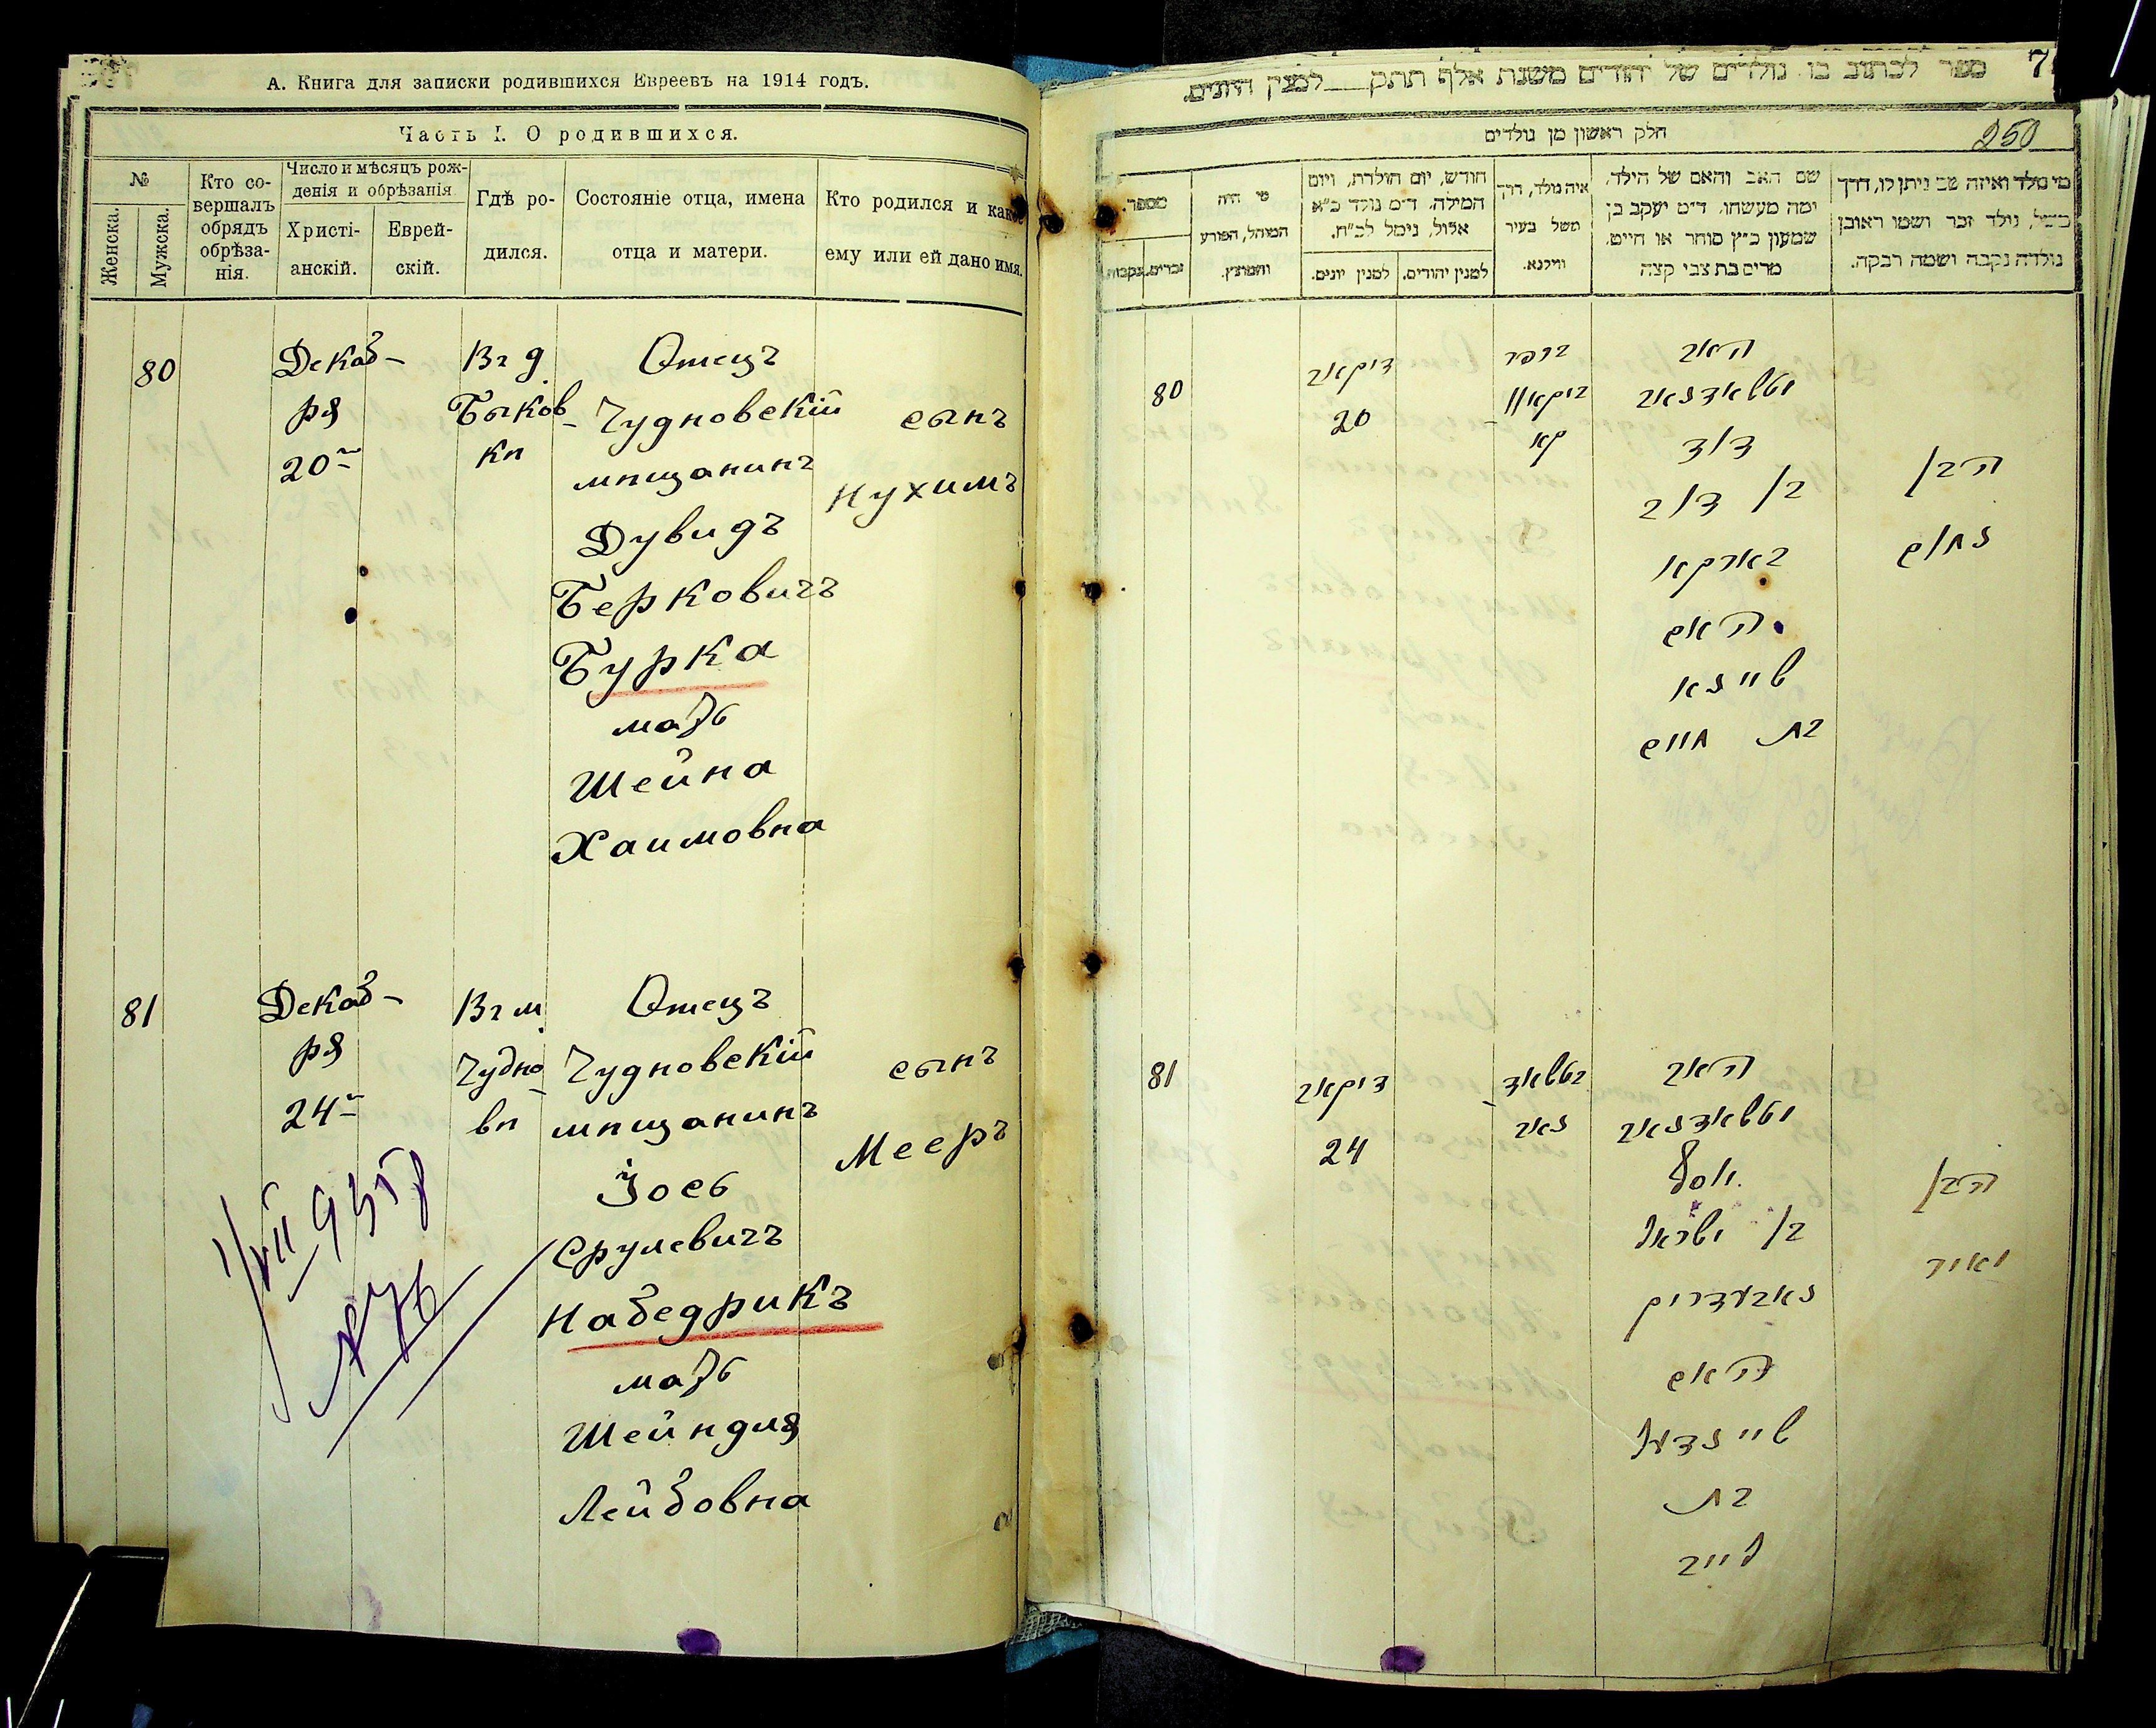 А. Книга для записки родившихся Евреевъ на 1914 годъ.
Часть I. О родившихся.
№
Женска.
Мужска.
Кто совершалъ обрядъ обрѣзанія.
Число и мѣсяцъ рожденія и обрѣзанія
Христіанскій.
Еврейскій.
Гдѣ родился.
Состояніе отца, имена отца и матери.
Кто родился и какое ему или ей дано имя.
80
Декаб-
ря
20
Въ д.
Быков-
кѣ
Отецъ
Чудновскій
мѣщанинъ
Дувидъ
Берковичъ
Бурка
мать
Шейна
Хаимовна
сынъ
Нухимъ
81
Декаб-
ря
24
Въ м.
Чудно-
вѣ
Отецъ
Чудновскій
мѣщанинъ
Іось
Срулевичъ
Набедрикъ
мать
Шейндля
Лейбовна
сынъ
Мееръ
7
ספר לכתוב בו נולדים של יהודים משנת אלף תתק למנין היונים.
250
חלק ראשון מן נולדים
מספר.
זכרים.
נקבות.
מי היה המוהל, הפורע והמוצץ.
חודש, יום הולדת, ויום המילה. ד״מ נולד כ״א אלול, נימל לכ״ח.
למנין יונים.
למנין יהודים.
איה נולד, דרך משל בעיר ווילנא.
שם האב והאם של הילד, ומה מעשהו. ד״מ יעקב בן שמעון כ״ץ סוחר או חייט. מרים בת צבי קצה
מי נולד ואיזה שם ניתן לו, דרך משל, נולד זכר ושמו ראובן נולדה נקבה ושמה רבקה.
80
דיקאב
20
בכפר
ביקאוו-
קא
האב
דוד
בן דוב
בארקא
האם
שיינא
בת חיים
הבן
נחום
81
דיקאב
24
האב
יוסף
בן ישראל
נאבעדריק
האם
שיינדעל
בת
לייב
הבן
מאיר